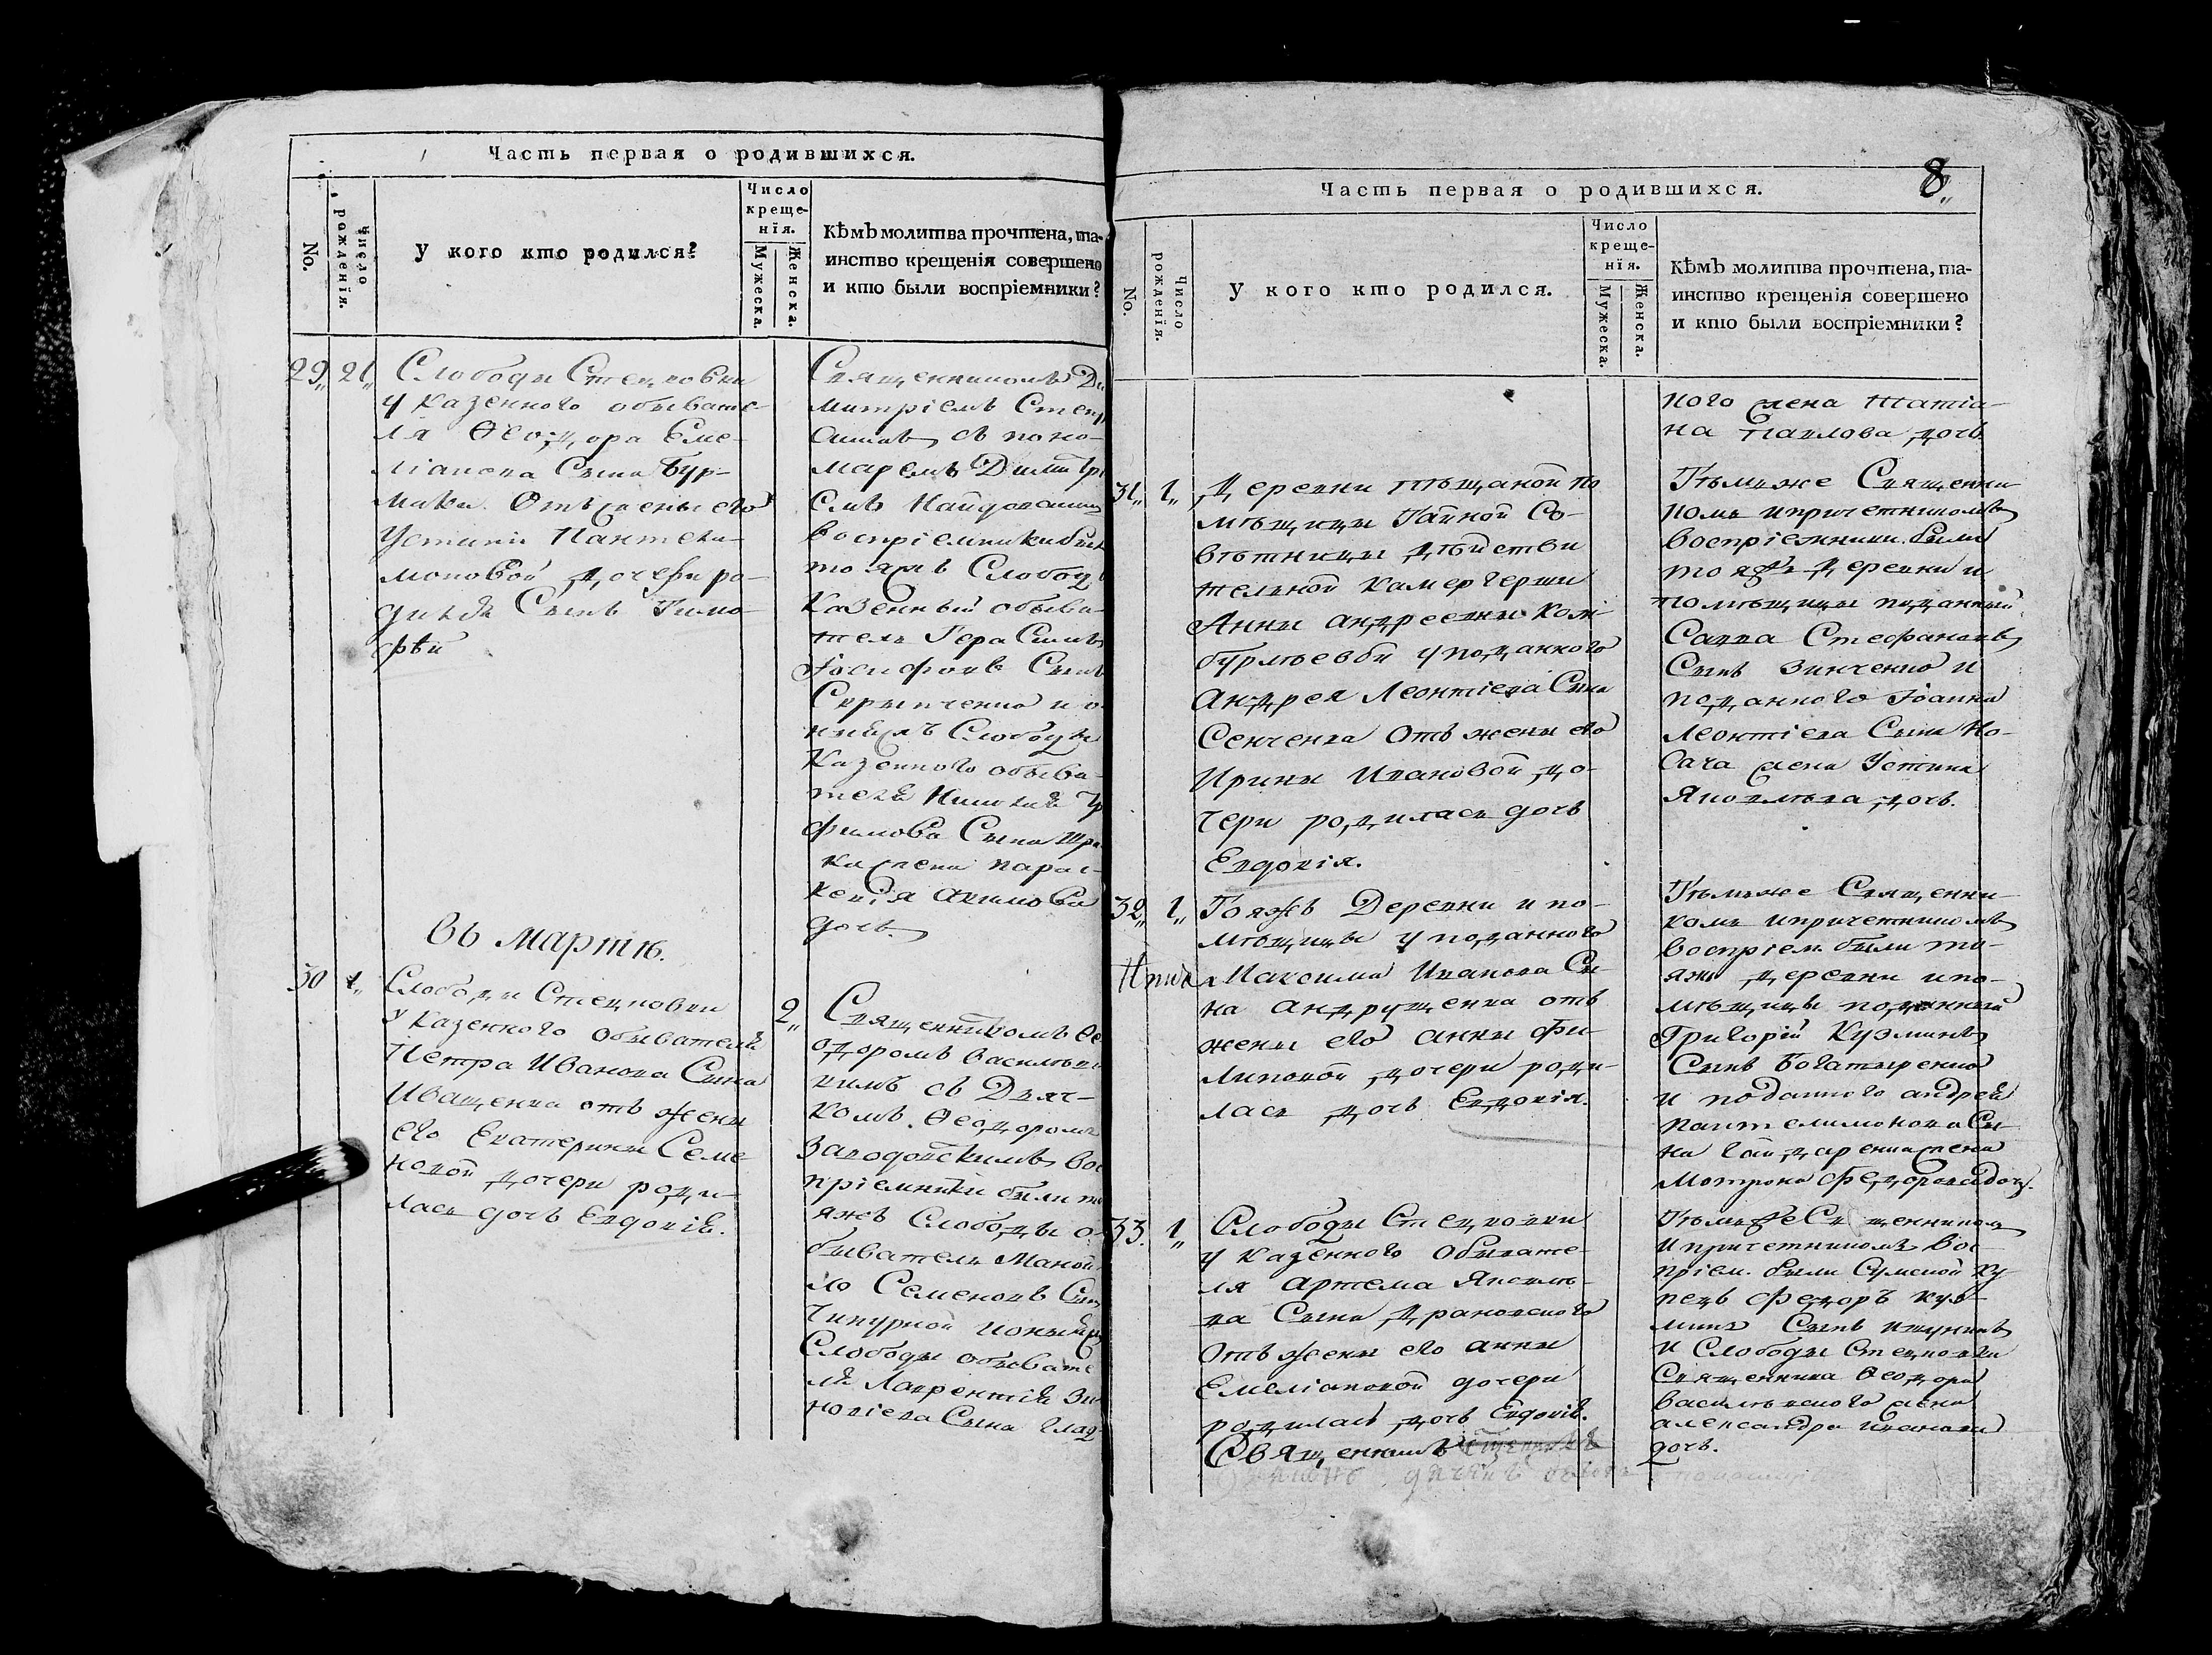 Часть первая о родившихся.
No.
Число рожденія.
У кого кто родился?
Число
креще-
нія.
Мужеска.
Женска.
Кѣмъ молитва прочтена, та-
инство крещенія совершено
и кто были воспріемники?
29,, 21,,
Слободы Стецковки
у казенного обывате-
ля Ѳеодора Еме-
ліанова Сына Бур-
мики. Отъ жены его
Устиніи Пантели-
моновой дочери ро-
дился Сынъ Тимо-
фѣй
Священникомъ Ди
митріемъ Стец
съ поно-
маремъ Димитрі
емъ
воспріемники был
тояжъ Слобод
Казенный обыва-
тель Герасимъ
Іосифовъ Сынъ
Скрыпченко и о
Слободы
Казенного обыва-
теля Николая Тр
фимова Сына
жена Парас-
кевія Акимова
дочь.
Въ Мартѣ.
30 1,,
Слободы Стецковки
у Казенного Обывателя
Петра Иванова Сына
Иващенка отъ жены
его Екатерины Семе
новой дочери роди-
лась дочь Евдокія.
2,,
Священникомъ Ѳе
одоромъ Васильков
кимъ съ Дьяч-
комъ Ѳеодоромъ
Заводовскимъ Вос
пріемники были то
яжъ Слободы о
быватель Мануй
ло Семеновъ Сынъ
Чипурной
Слободы обывате
ля Лаврентія Зи
новіева Сына Глад
8,,
Часть первая о родившихся.
No.
Число рожденія.
У кого кто родился.
Число
креще-
нія.
Мужеска.
Женска.
Кѣмъ молитва прочтена, та-
инство крещенія совершено
и кто были воспріемники?
кого жена Татіа-
на Павлова дочь.
31,, 1,,
Деревни Тѣщаной по
мѣщицы Тайной Со-
вѣтницы дѣйстви
тельной камергерши
Анны Андреевны Ком-
бурлѣевой у поданного
Андрея Леонтіева Сына
Сенченка Отъ жены его
Ирины Ивановой до-
чери родилась дочь
Евдокія.
Тѣмъже Священни
комъ и причетникомъ
воспріемники были
тояжъ деревни и
помѣщицы поданный
Савва Стефановъ
Сынъ Зинченко и
поданного Іоанна
Леонтіева Сына Но-
сача жена Устина
Яковлева дочь.
32,, 1,,
Тояжъ Деревни и по-
мѣщицы у поданного
Максима Иванова Сы-
на Андрущенка отъ
жены его Анны Фи-
липовой дочери роди-
лась дочь Евдокія.
Тѣмъже Священни-
комъ и причетникомъ
воспріем. были то-
яжъ деревни и по-
мѣщицы поданный
Григорій Кузминъ
Сынъ Богатыренко
и поданного Андрея
Пантелимонова Сы-
на Гайдаренка жена
Мотрона Федорова дочь.
33. 1,,
Слободы Стецковки
у казенного Обывате-
ля Артема Яковлѣ-
ва Сына Драновского
Отъ жены его Анны
Емеліановой дочери
родилась дочь Евдокія.
Священникъ
Тѣмъже Священникомъ
и причетникомъ Вос-
пріем. были Сумской ку
пецъ Федоръ Куз-
минъ Сынъ
и Слободы Стецковки
Священника Ѳеодора
Васильковского жена
Александра Иванова
дочь.